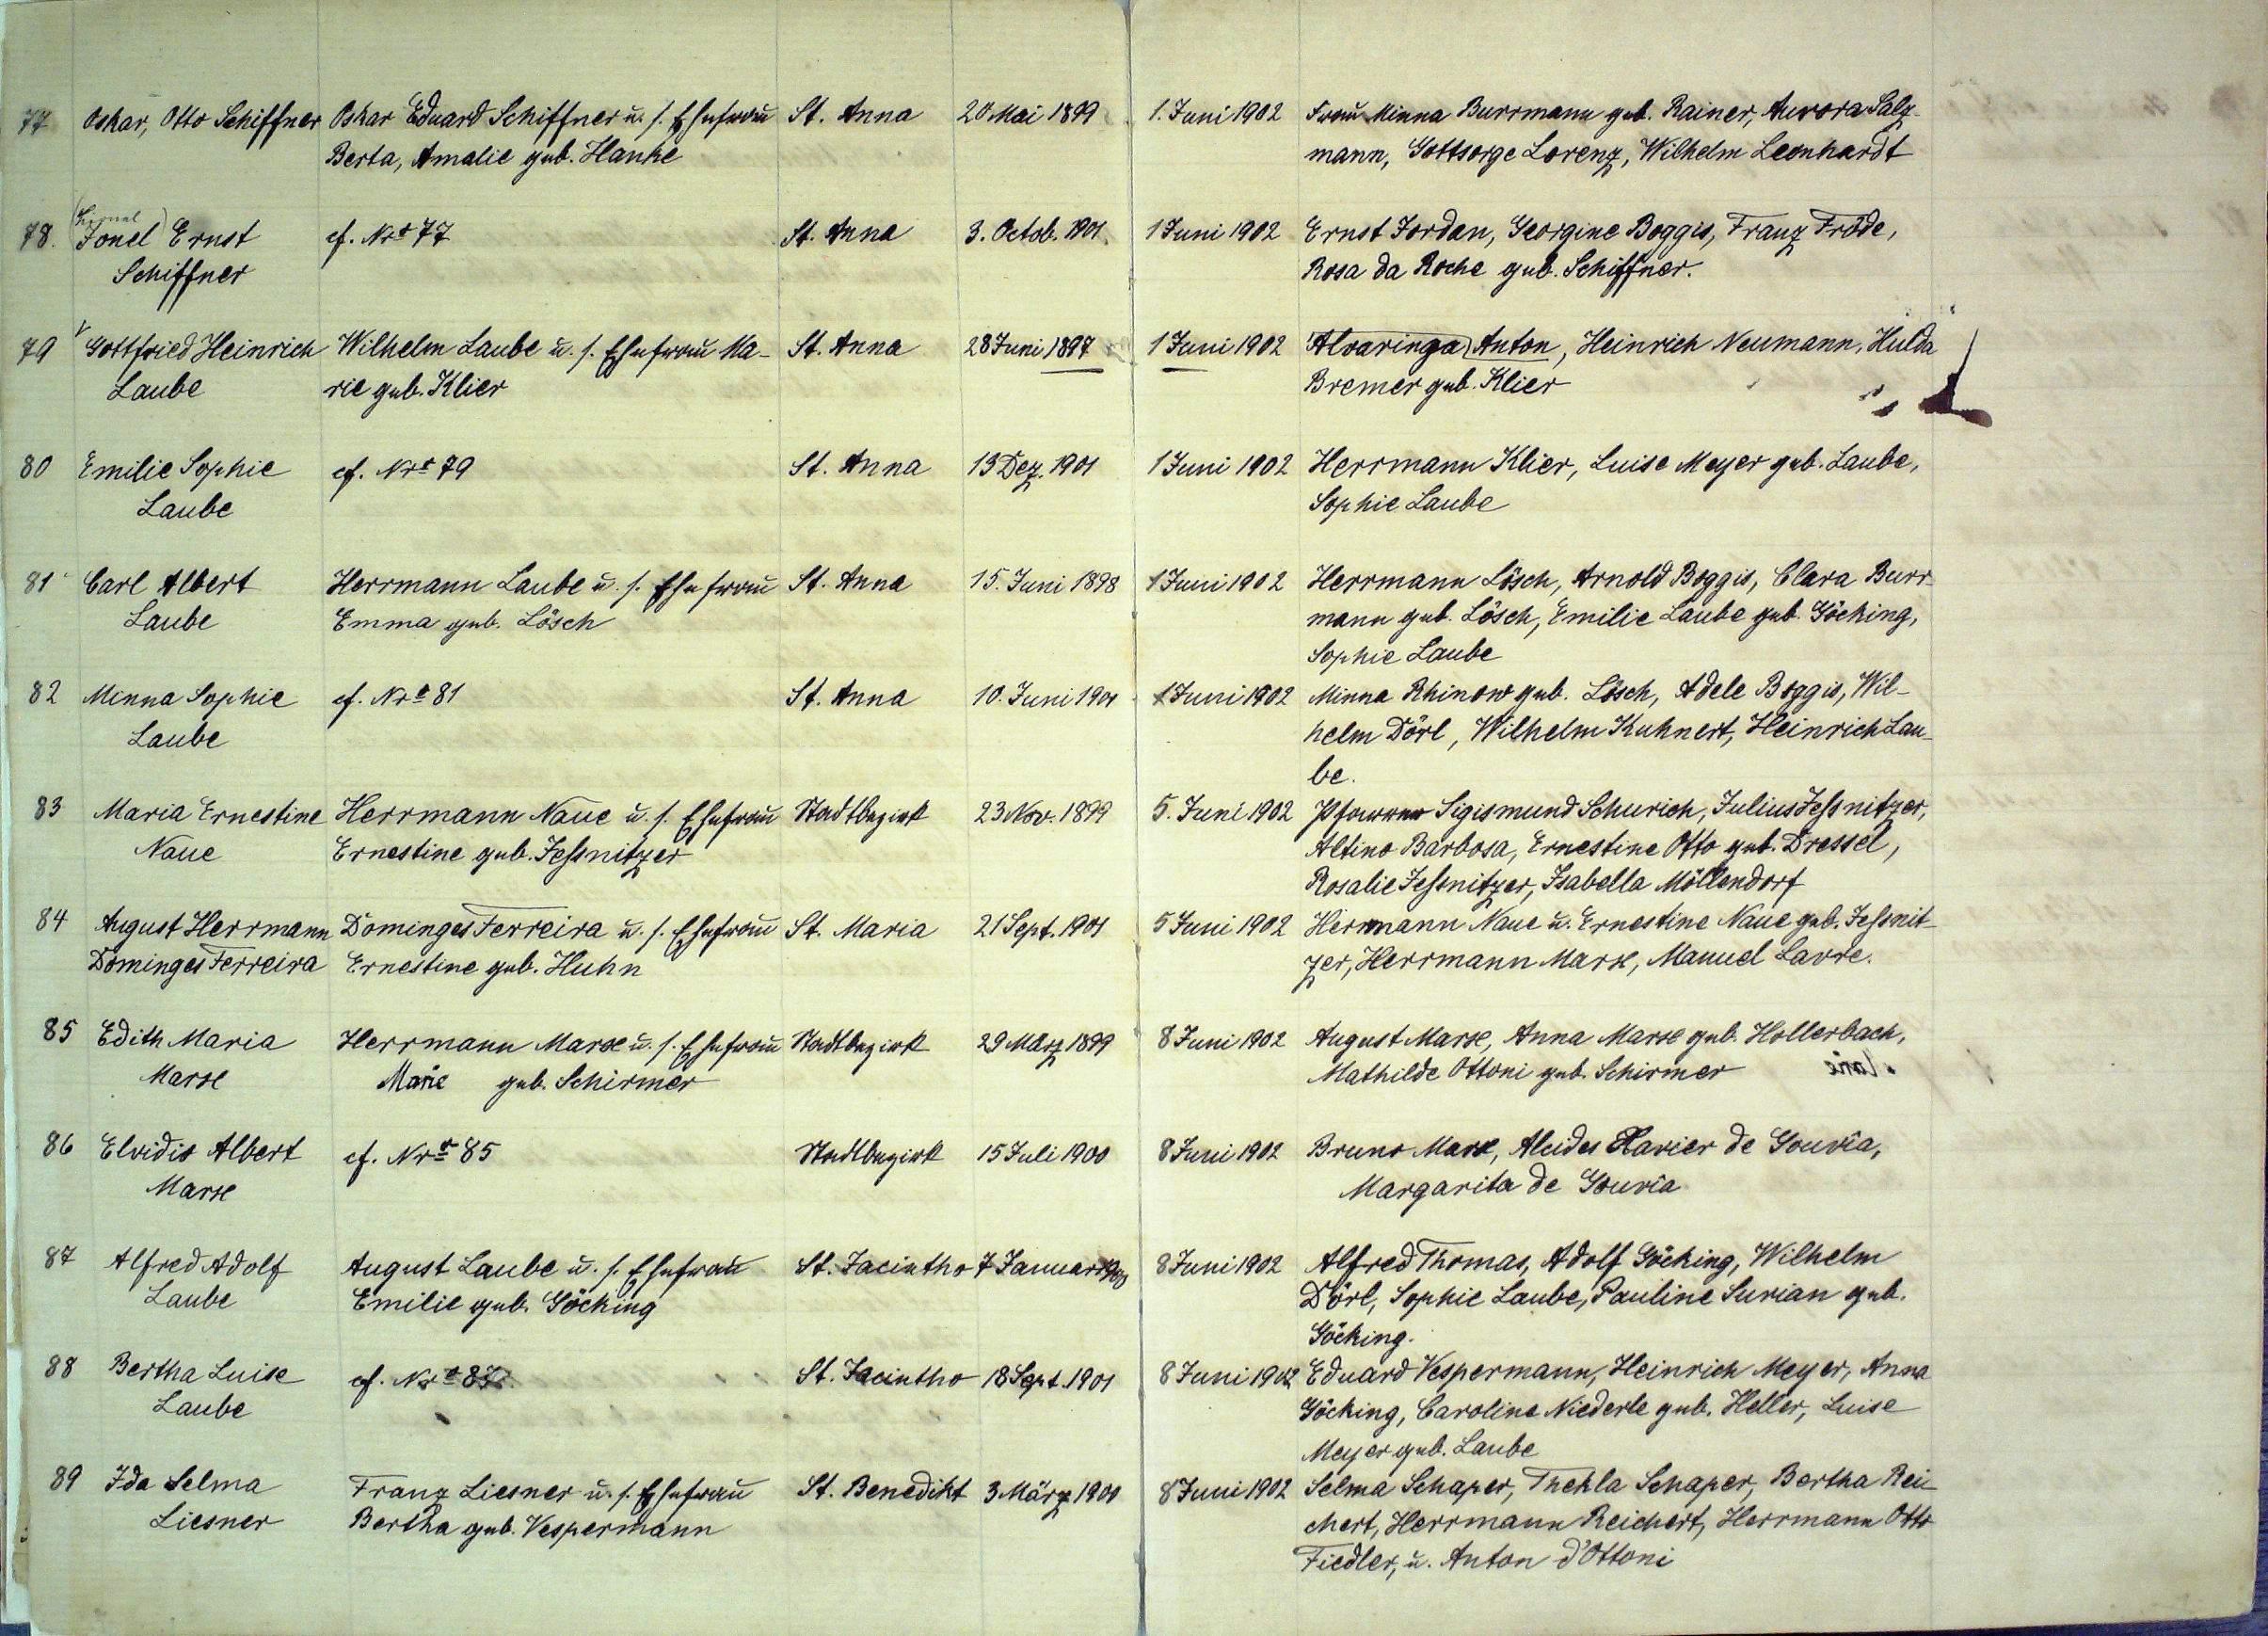 77 Oskar, Otto Schiffner Oskar Eduard Schiffner u. s. Ehefrau St. Anna 20 Mai 1899 1. Juni 1902 Frau Minna Burrmann geb. Rainer, Aurora Salz-
Berta, Amalie geb. Hanke mann, Gottsorge Lorenz, Wilhelm Leonhardt
(Lionel)
78. Jonel Ernst cf. Nro 77 St. Anna 3. Octob. 1901. 1 Juni 1902 Ernst Jordan, Georgine Boggis, Franz Fröde,
Schiffner Rosa da Roche geb. Schiffner.
79 Gottfried Heinrich Wilhelm Laube u. s. Ehefrau Ma- St. Anna 28 Juni 1897 1 Juni 1902 Alvaringa Anton, Heinrich Neumann, Hulda
Laube rie geb. Klier Bremer geb. Klier
80 Emilie Sophie cf. Nro 79 St. Anna 13 Dez. 1901 1 Juni 1902 Herrmann Klier, Luise Meyer geb. Laube,
Laube Sophie Laube
81 Carl Albert Herrmann Laube u. s. Ehefrau St. Anna 15. Juni 1898 1 Juni 1902 Herrmann Lösch, Arnold Boggis, Clara Burr-
Laube Emma geb. Lösch mann geb. Lösch, Emilie Laube geb. Göcking,
Sophie Laube
82 Minna Sophie cf. Nro 81 St. Anna 10. Juni 1901 1 Juni 1902 Minna Rhinow geb. Lösch, Adele Boggis, Wil-
Laube helm Dörl, Wilhelm Kuhnert, Heinrich Lau-
be.
83 Maria Ernestine Herrmann Naue u. s. Ehefrau Stadtbezirk 23 Nov. 1899 5. Juni 1902 Pfarrer Sigismund Schurich, Julius Jeßnitzer,
Naue Ernestine geb. Jeßnitzer Altino Barbosa, Ernestine Otto geb. Dressel,
Rosalie Jeßnitzer, Isabella Möllendorf
84 August Herrmann Dominges Ferreira u. s. Ehefrau St. Maria 21 Sept. 1901 5 Juni 1902 Herrmann Naue u. Ernestine Naue geb. Jeßnit-
Dominges Ferreira Ernestine geb. Huhn zer, Herrmann Marx, Manuel Lavre.
85 Edith Maria Herrmann Marx u. s. Ehefrau Stadtbezirk 29 März 1899 8 Juni 1902 August Marx, Anna Marx geb. Hollerbach,
Marx Marie geb. Schirmer Mathilde Ottoni geb. Schirmer
86 Elvidis Albert cf. Nro 85 Stadtbezirk 15 Juli 1900 8 Juni 1902 Bruno Marx, Alcides Xavier de Gouvîa,
Marx Margarita de Gouvîa
87 Alfred Adolf August Laube u. s. Ehefrau St. Jacintho 7 Januar 1900 8 Juni 1902 Alfred Thomas, Adolf Göcking, Wilhelm
Laube Emilie geb. Göcking Dörl, Sophie Laube, Pauline Surian geb.
Göcking.
88 Bertha Luise cf. Nro 87. St. Jacintho 18 Sept. 1901 8 Juni 1902 Eduard Vespermann, Heinrich Meyer, Anna
Laube Göcking, Caroline Niederle geb. Heller, Luise
Meyer geb. Laube
89 Ida Selma Franz Liesner u. s. Ehefrau St. Benedikt 3 März 1900 8 Juni 1902 Selma Schaper, Thekla Schaper, Bertha Rei-
Liesner Bertha geb. Vespermann chert, Herrmann Reichert, Herrmann Otto
Fiedler, u. Anton d'Ottoni